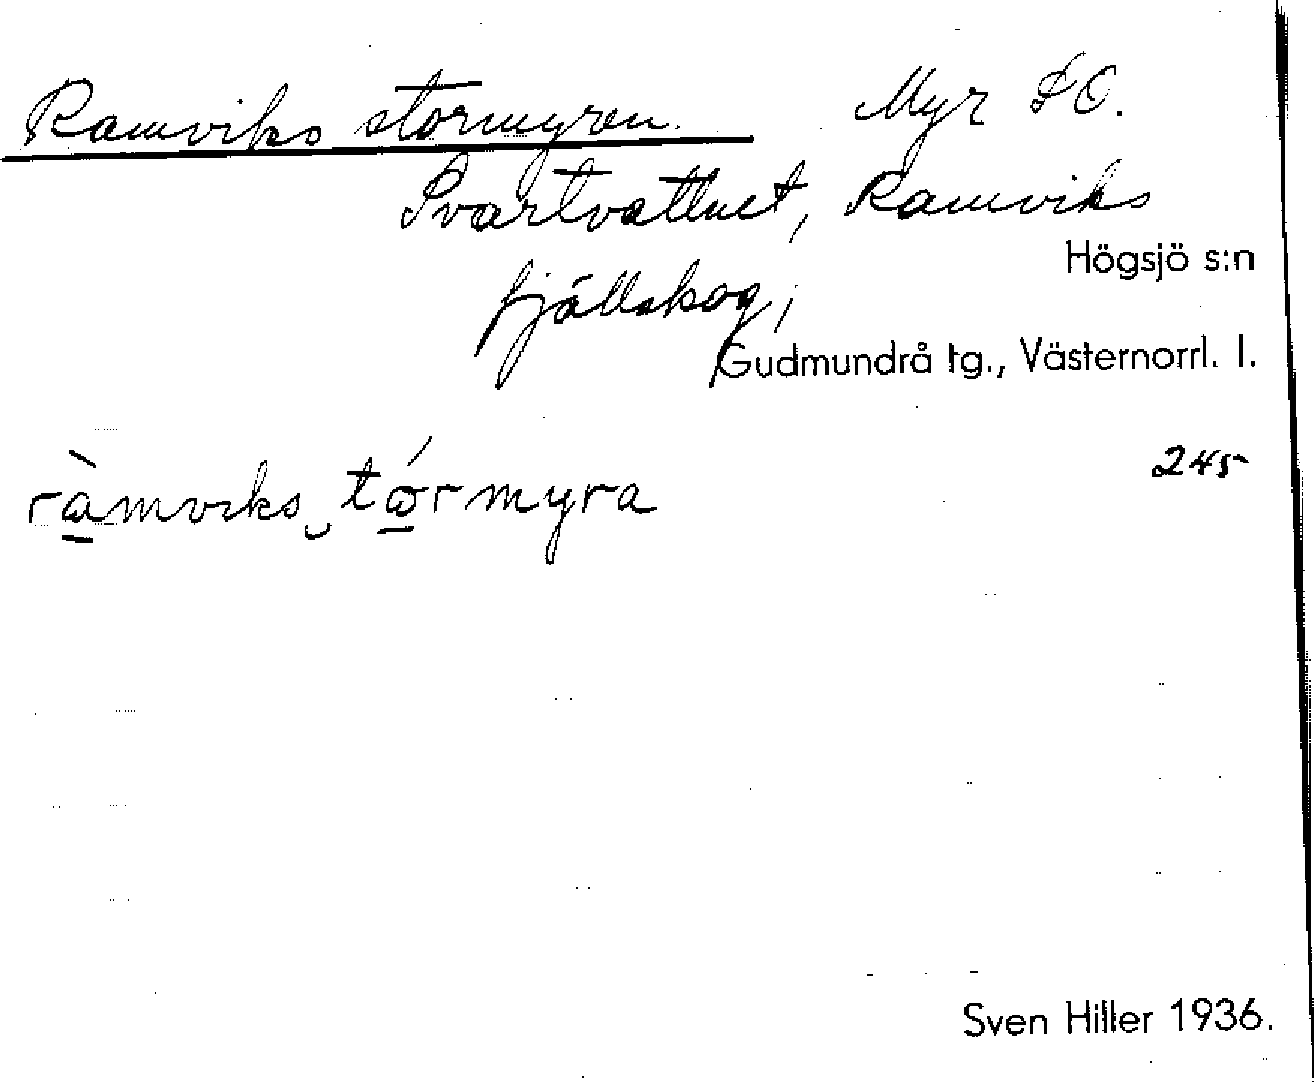 Ramviks stormyren. Myr SO.
Svartvattnet, Ramviks
Högsjö s:n
fjällskog,
Gudmundrå tg., Västernorrl. l.
245
ràmviks‿tórmyra
Sven Hiller 1936.